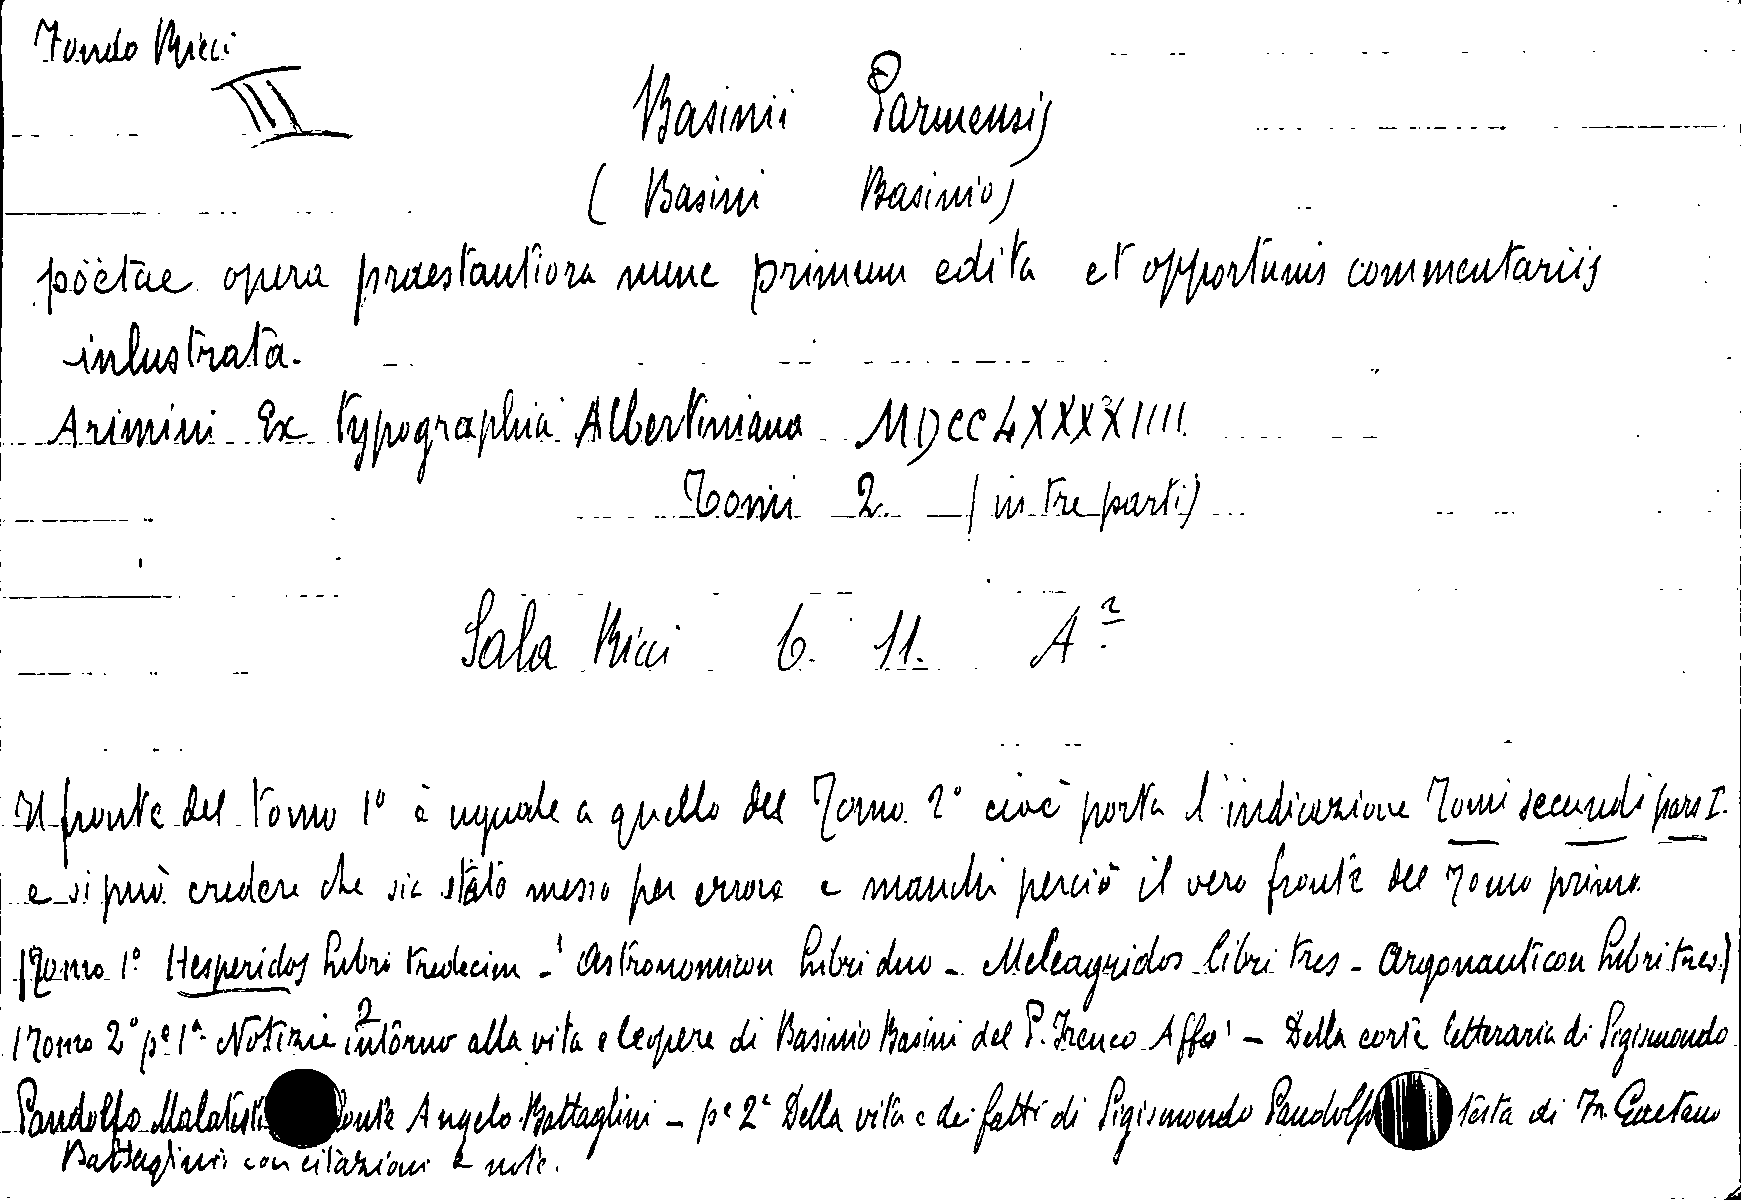 Fondo Ricci
III
Basinii Parmensis
(Basini Basinio)
poëtae opera praestantiora nunc primum edita et opportunis commentariis
inlustrata.
Arimini Ex typographia Albertiniana MDCCLXXXXIIII
Tomi 2. (in tre parti)
Sala Ricci 6. 11. A
Il fronte del tomo 1° è uguale a quello del Tomo 2° cioè porta l'indicazione Tomi secundi pars I.
e si può credere che sia stato messo per errore e manchi perciò il vero fronte del Tomo primo
(Tomo 1° Hesperidos Libri tredecim - Astronomicon Libri duo - Meleagridos libri tres - Argonauticon Libri tres)
(Tomo 2° pe 1a Notizie intorno alla vita e le opere di Basinio Basini del P. Ireneo Affò - Della corte letteraria di Sigismondo
Pandolfo Angelo Battaglini - pe 2a Della vita e dei fatti di Sigismondo di Fr. Gaetano
Battaglini con citazioni e note.